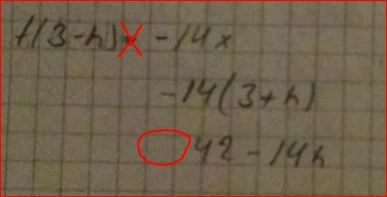 f(3-h)= -14x
-14(3+h)
42-14h